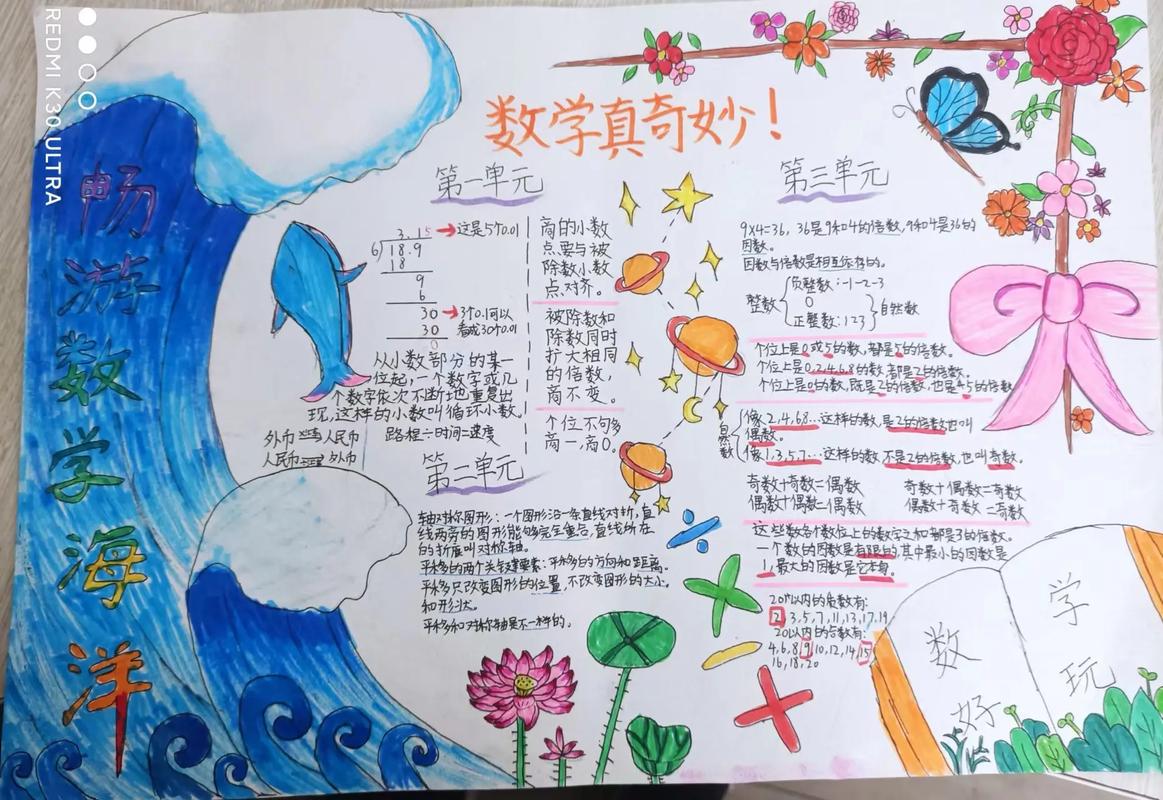 REDMI K30 ULTRA
畅游数学海洋
数学真奇妙！
第一单元
3.15
6 18.9
18
9
6
30
30
0
→这是5个0.01
→3个0.1可以
看成30个0.01
从小数部分的某一
位起,一个数字或几
个数字依次不断地重复出
现,这样的小数叫循环小数。
外币 人民币
人民币 外币
路程÷时间=速度
商的小数
点要与被
除数小数
点对齐。
被除数和
除数同时
扩大相同
的倍数,
商不变。
个位不够
商一,商0。
第二单元
轴对称图形:一个图形沿一条直线对折,直
线两旁的图形能够完全重合,直线所在
的折痕叫对称轴。
平移的两个关键要素:平移的方向和距离。
平移只改变图形的位置,不改变图形的大小
和形状。
平移和对称轴是不一样的。
第三单元
9×4=36, 36是9和4的倍数,9和4是36的
因数。
因数与倍数是相互依存的。
整数
负整数:-1-2-3
0
正整数:123
自然数
个位上是0或5的数,都是5的倍数。
个位上是0,2,4,6,8的数,都是2的倍数。
个位上是0的数,既是2的倍数,也是5的倍数
自然数
像2,4,6,8...这样的数,是2的倍数也叫
偶数。
像1,3,5,7...这样的数,不是2的倍数,也叫奇数。
奇数+奇数=偶数 奇数+偶数=奇数
偶数+偶数=偶数 偶数+奇数=奇数
这些数各个数位上的数字之和都是3的倍数。
一个数的因数是有限的,其中最小的因数是
1,最大的因数是它本身。
20以内的质数有:
2,3,5,7,11,13,17,19
20以内的合数有:
4,6,8,9,10,12,14,15
16,18,20
数学
好玩